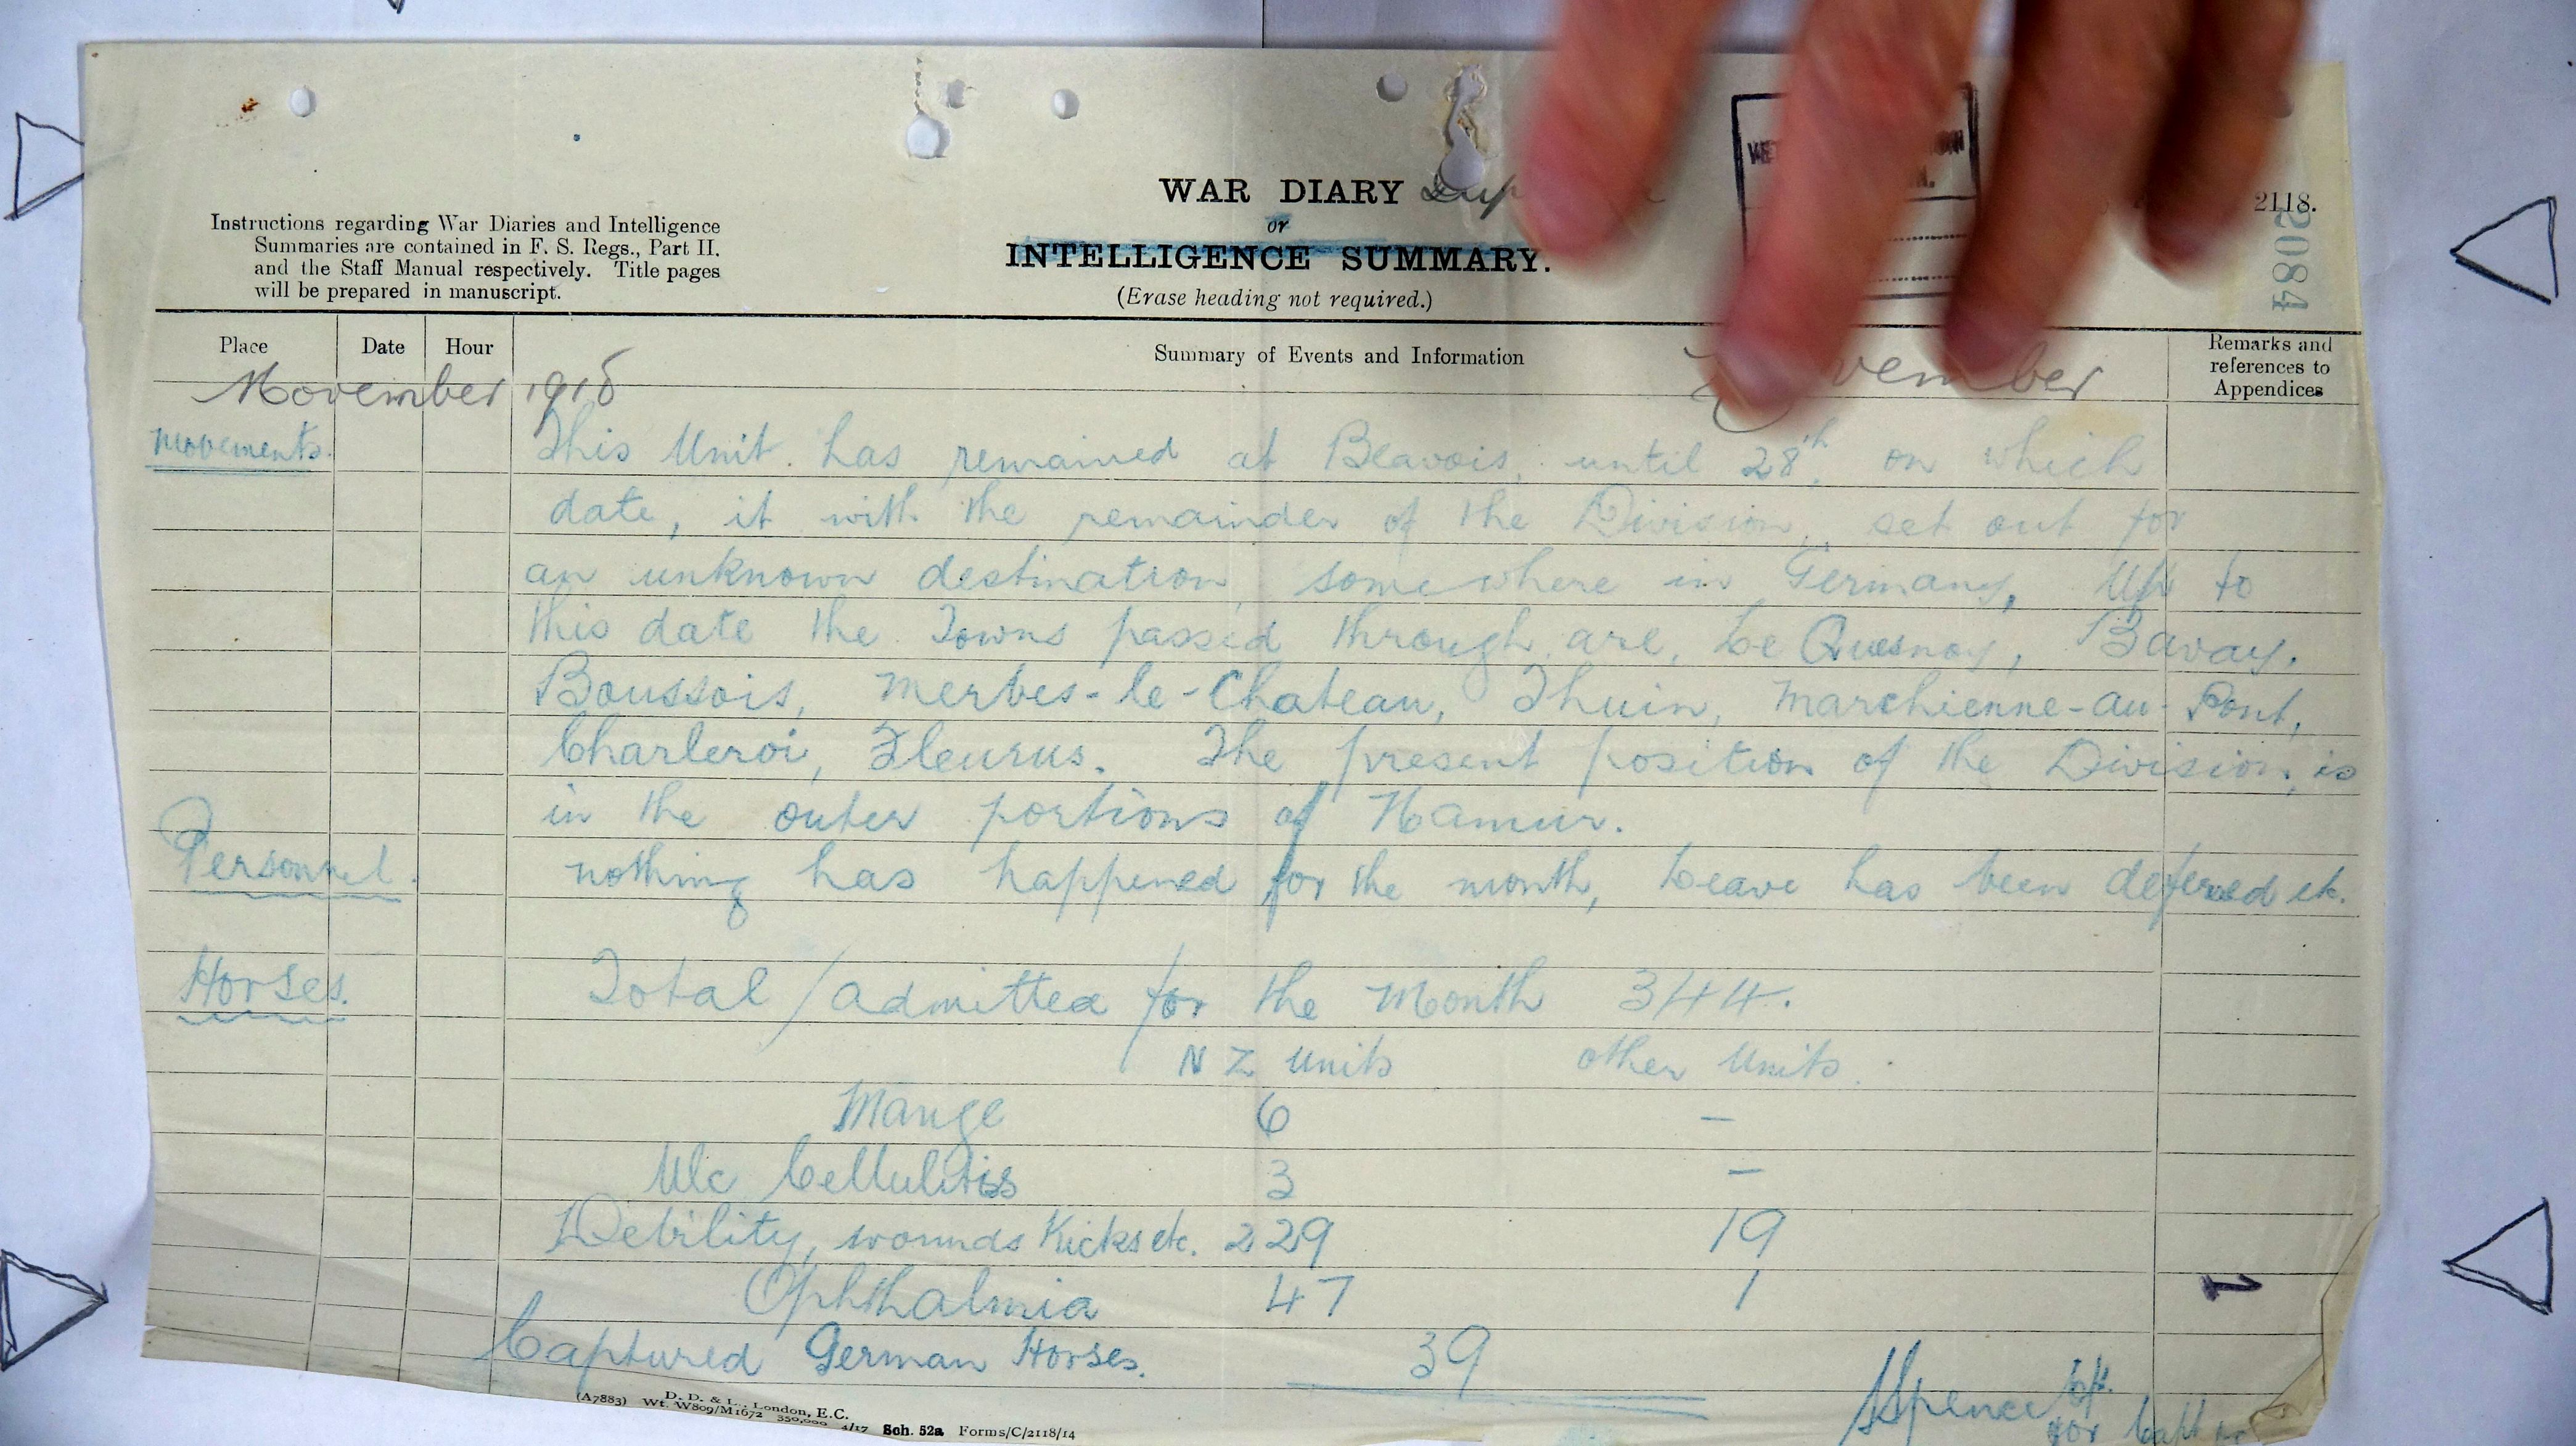 WAR DIARY
or
INTELLIGENCE SUMMARY.
(Erase heading not required.)
Instructions regarding War Diaries and Intelligence
Summaries are contained in F. S. Regs., Part II.
and the Staff Manual respectively. Title pages
will be prepared in manuscript.
2118.
2084
Place Date Hour Summary of Events and Information Remarks and references to Appendices
November 1918
movements. This Unit. has remained at Beavois, until 28th, on which
date, it with the remainder of the Division, set out for
an unknown destination, somewhere in Germany, Up to
this date the Towns passed through are, Le Quesnoy, Bavay.
Boussois, Merbes-le-Chateau, Thuin, Marchienne-au-Pont,
Charleroi, Fleurus. The present position of the Division, is
in the outer portions of Namur.
Personnel. nothing has happened for the month, Leave has been deferred etc.
Horses. Total / admitted for the Month 344.
NZ units other Units.
Mange 6 –
Ulc Cellulitis 3 –
Debility, wounds Kicks etc. 229 19
Ophthalmia 47 1
Captured German Horses. 39
1
Spence
for Capt
(A7883) D. D. & L., London, E.C.
Wt. W809/M1672 350,000 4/17 Sch. 52a Forms/C/2118/14